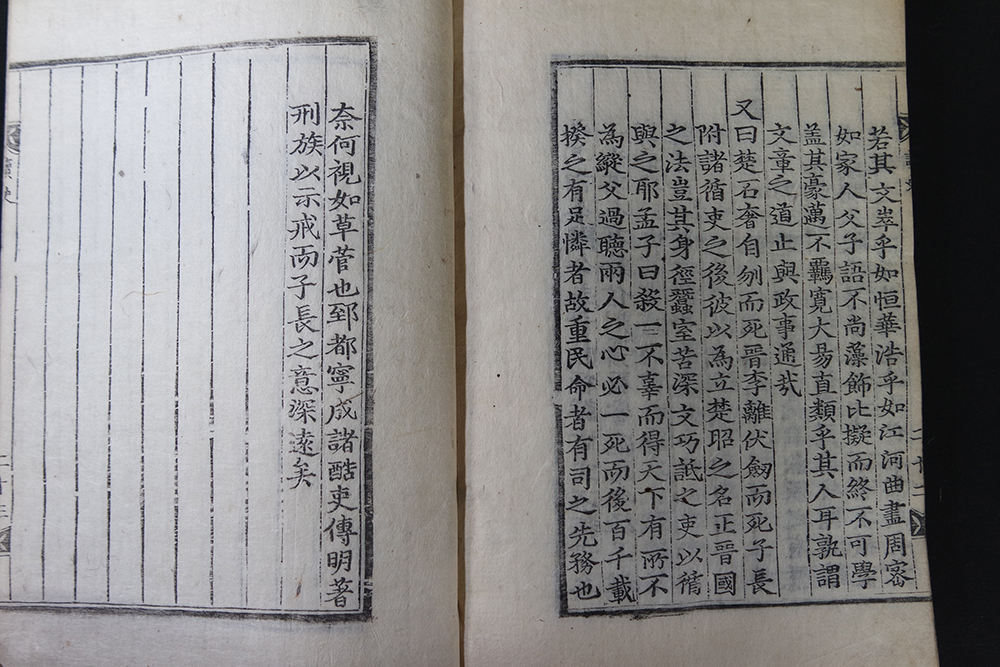 若其文崒乎如恒華浩乎如江河曲盡周密
如家人父子語不尚藻飾比擬而終不可學
盖其豪邁不羈寬大易直類乎其人耳孰謂
文章之道止與政事通㢤
又曰楚石奢自刎而死晋李離伏劒而死子長
附諸循吏之後彼以為立楚昭之名正晋國
之法豈其身徑蠶室苦深文巧詆之吏以循
與之耶孟子曰殺一不辜而得天下有所不
為縱父過聽兩人之心必一死而後百千載
揆之有足憐者故重民命者有司之先務也
二十二
奈何視如草菅也郅都寧成諸酷吏傳明著
刑族以示戒而子長之意深遠矣
讀史
二十三